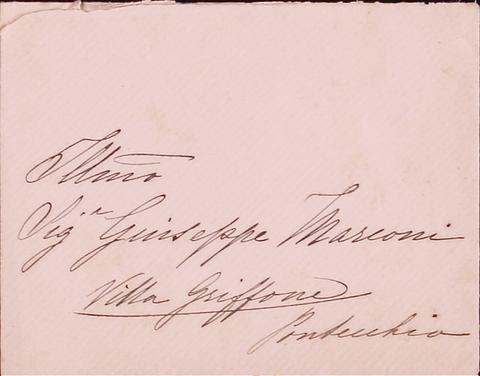 Illmo
Sigr Giuseppe Marconi
Villa Griffone
Pontecchio